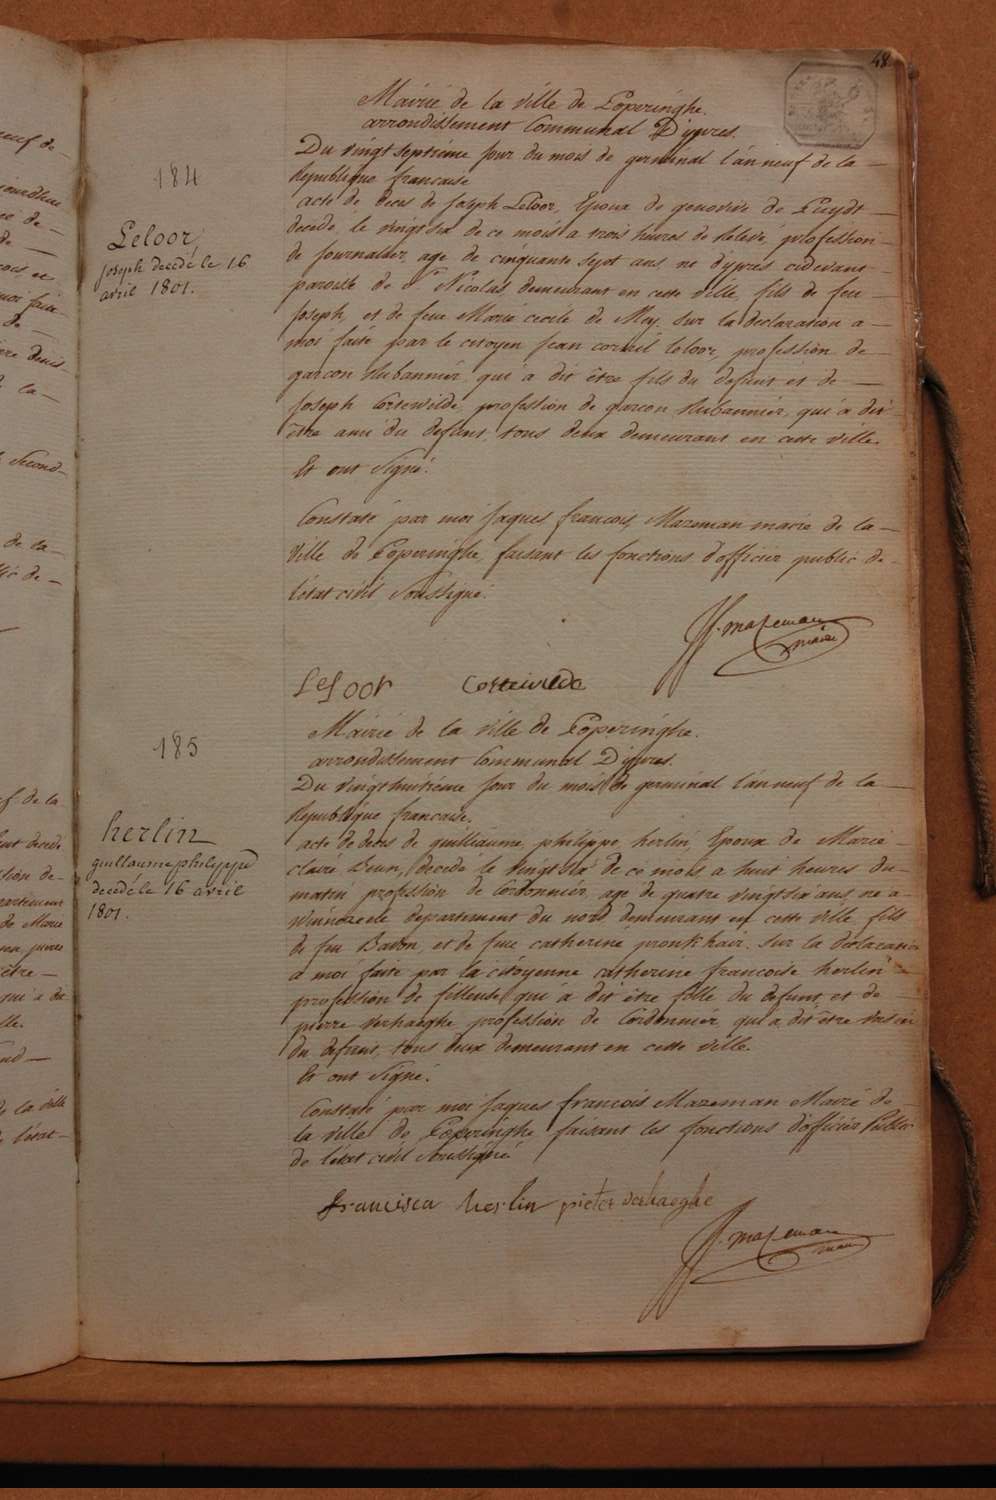 48
Mairie de la ville de Poperinghe.
arrondissement Communal D'ypres.
184
Du vingt septieme jour du mois de germinal l'an neuf de la
Republique francaise
acte de deces de joseph Leloor, Epoux de genovive de Puydt
décedé, le vingt six de ce mois a trois heures de Relevé, profession
Leloor,
joseph decedé le 16
avril 1801.
de journalier, age de cinquante sept ans, ne d'ypres cidevant
paroisse de St Nicolas, demeurant en cette ville, fils de feu
joseph, et de feue Marie cecile de Mey. Sur la declaration a
moi faite par le citoyen jean corneil leloor, profession de
garcon Rubannier, qui a dit être fils du defunt et de
joseph Cortewilde, profession de garcon Rubannier, qui a dit
être ami du defunt, tous deux demeurant en cette ville.
Et ont Signé.
Constaté par moi jaques francois Mazeman maire de la
ville de Poperinghe, faisant les fonctions d'officier public de
l'état civil Soussigné.
J.f. mazeman
maire
Leloor Cortewilde
Mairie de la ville de Poperinghe.
arrondissement Communal D'ypres.
185
Du vingthuitieme jour du mois de germinal l'an neuf de la
Republique francaise.
acte de deces de guilliaume philippe herlin, Epoux de Marie
herlin
guillaume philyppe
decedé le 16 avril
1801.
claire Beun, decedé le vingt six de ce mois a huit heures du
matin, profession de Cordonnier, age de quatre vingt six ans, ne a
Winnezeele departement du nord demeurant en cette ville, fils
de feu Bavon, et de feue catherine . Sur la declaration
a moi faite par la citoyenne catherine francoise herlin
profession de filleuse, qui a dit être fille du defunt, et de
pierre verhaeghe profession de Cordonnier, qui a dit être voisin
du defunt, tous deux demeurant en cette ville.
Et ont Signé.
Constaté par moi jaques francois Mazeman Maire de
la ville de Poperinghe faisant les fonctions d'officier Public
de l'état civil Soussigné
francisca herlin pieter verhaeghe
J.f. mazeman
maire